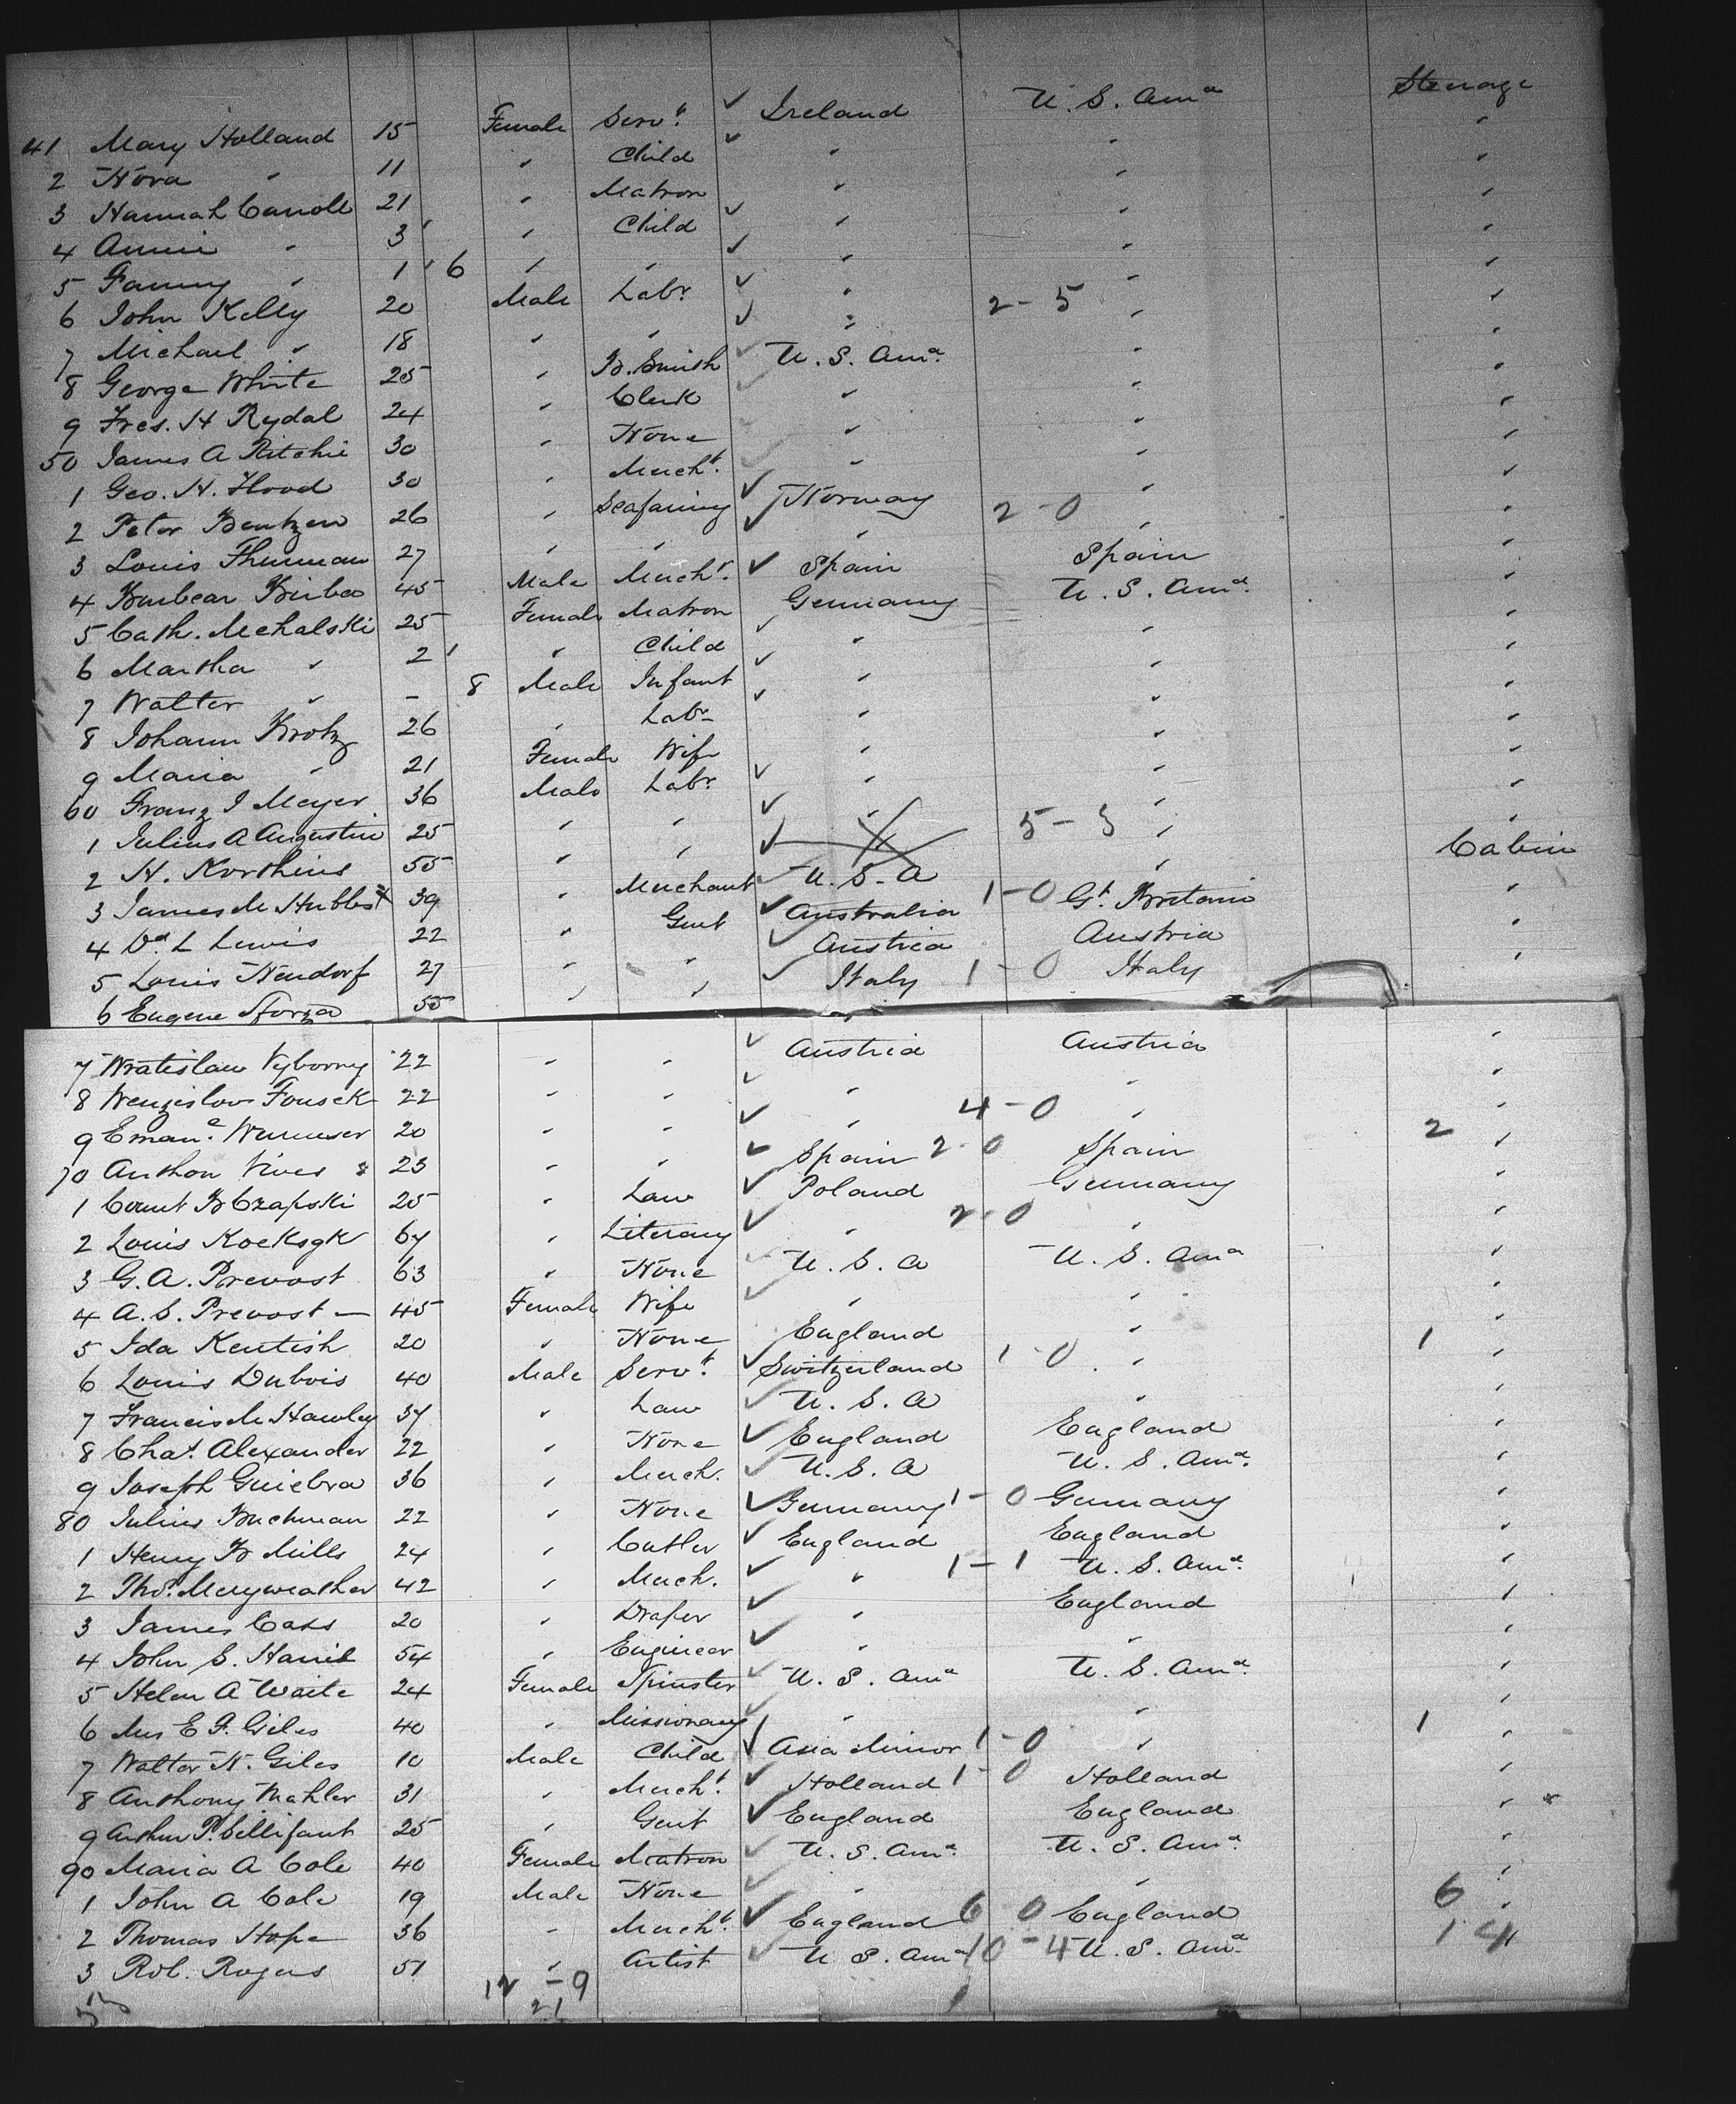 41 Mary Holland 15 Female Serv.t ✓ Ireland U. S. Ama Steerage
2 Nora " 11 " Child ✓ " " "
3 Hannah Carroll 21 " Matron " " "
4 Annie " 3 " Child ✓ " " "
5 Fanny " 1 6 " " ✓ " " "
6 John Kelly 20 Male Labr. ✓ " 2-5 " "
7 Michael " 18 " " ✓ " " "
8 George White 25 " B. Smith ✓ U. S. Ama. " "
9 Fres. H Rydal 24 " Clerk ✓ " " "
50 James A Ritchie 30 " None ✓ " " "
1 Geo. H. Hood 30 " Mercht. ✓ " " "
2 Peter Bentzen 26 " Seafaring ✓ Norway 2-0 " "
3 Louis Thurman 27 " " ✓ " " "
4 45 Male Mercht. ✓ Spain Spain "
5 Cath. Mchalski 25 Female Matron Germany U. S. Ama. "
6 Martha " 2 " Child ✓ " " "
7 Walter " - 8 Male Infant ✓ " " "
8 Johann Krotz 26 " Labr ✓ " " "
9 Maria " 21 Female Wife " " "
60 Franz J Meyer 36 Male Labr. ✓ " " "
1 Julius A Augustin 25 " " ✓ " 5-3 " "
2 H. Korthius 55 " " ✓ " "
3 James M Hubbert 39 " Merchant ✓ U. S. A " Cabin
4 Dd L Lewis 22 " Gent ✓ Australia 1-0 Gt. Britain "
5 Louis Neudorf 27 " " ✓ Austria Austria "
6 Eugene Sforza 55 " " ✓ Italy 1-0 Italy "
7 Wratislaw Vyborny 22 " " ✓ Austria Austria "
8 Wenzislov Fousek 22 " " ✓ " " "
9 Emane. Wurmser 20 " " ✓ " 4-0 " "
70 Anthon Vives 23 " " ✓ Spain 2-0 Spain 2 "
1 Count B Czapski 25 " Law ✓ Poland Germany "
2 Louis Kocksgk 67 " Literary ✓ " 2-0 " "
3 G. A. Prevost 63 " None ✓ U. S. A U. S. Ama "
4 A. S. Prevost — 45 Female Wife ✓ " " "
5 Ida Kentish 20 " None England " "
6 Louis Dubois 40 Male Serv.t ✓ Switzerland 1-0 " 1 "
7 Francis M Hawley 37 " Law ✓ U. S. A " "
8 Chas. Alexander 22 " None ✓ England England "
9 Joseph Guiebra 36 " Merch. ✓ U. S. A U. S. Ama. "
80 Julius Buchman 22 " None ✓ Germany 1-0 Germany "
1 Henry B Mills 24 " Cutler ✓ England England "
2 Thos. Meryweather 42 " Merch. ✓ " 1-1 U. S. Ama. "
3 James Cass 20 " Draper ✓ " England "
4 John S. Harris 54 " Engineer ✓ " " "
5 Helen A Waite 24 Female Spinster ✓ U. S. Ama U. S. Ama. "
6 Mrs E F. Giles 40 " Missionary ✓ " " "
7 Walter N. Giles 10 Male Child ✓ Asia Minor 1-0 " 1 "
8 Anthony Mahler 31 " Mercht. ✓ Holland 1-0 Holland "
9 Arthur P. Sillifant 25 " Gent ✓ England England "
90 Maria A Cole 40 Female Matron ✓ U. S. Ama. U. S. Ama. "
1 John A Cole 19 Male None ✓ " " "
2 Thomas Hope 36 " Mercht. ✓ England 6 0 England 6 "
3 Rob. Rogers 51 " Artist ✓ U S. Ama 10-4 U. S. Ama. 14
12 - 9
21